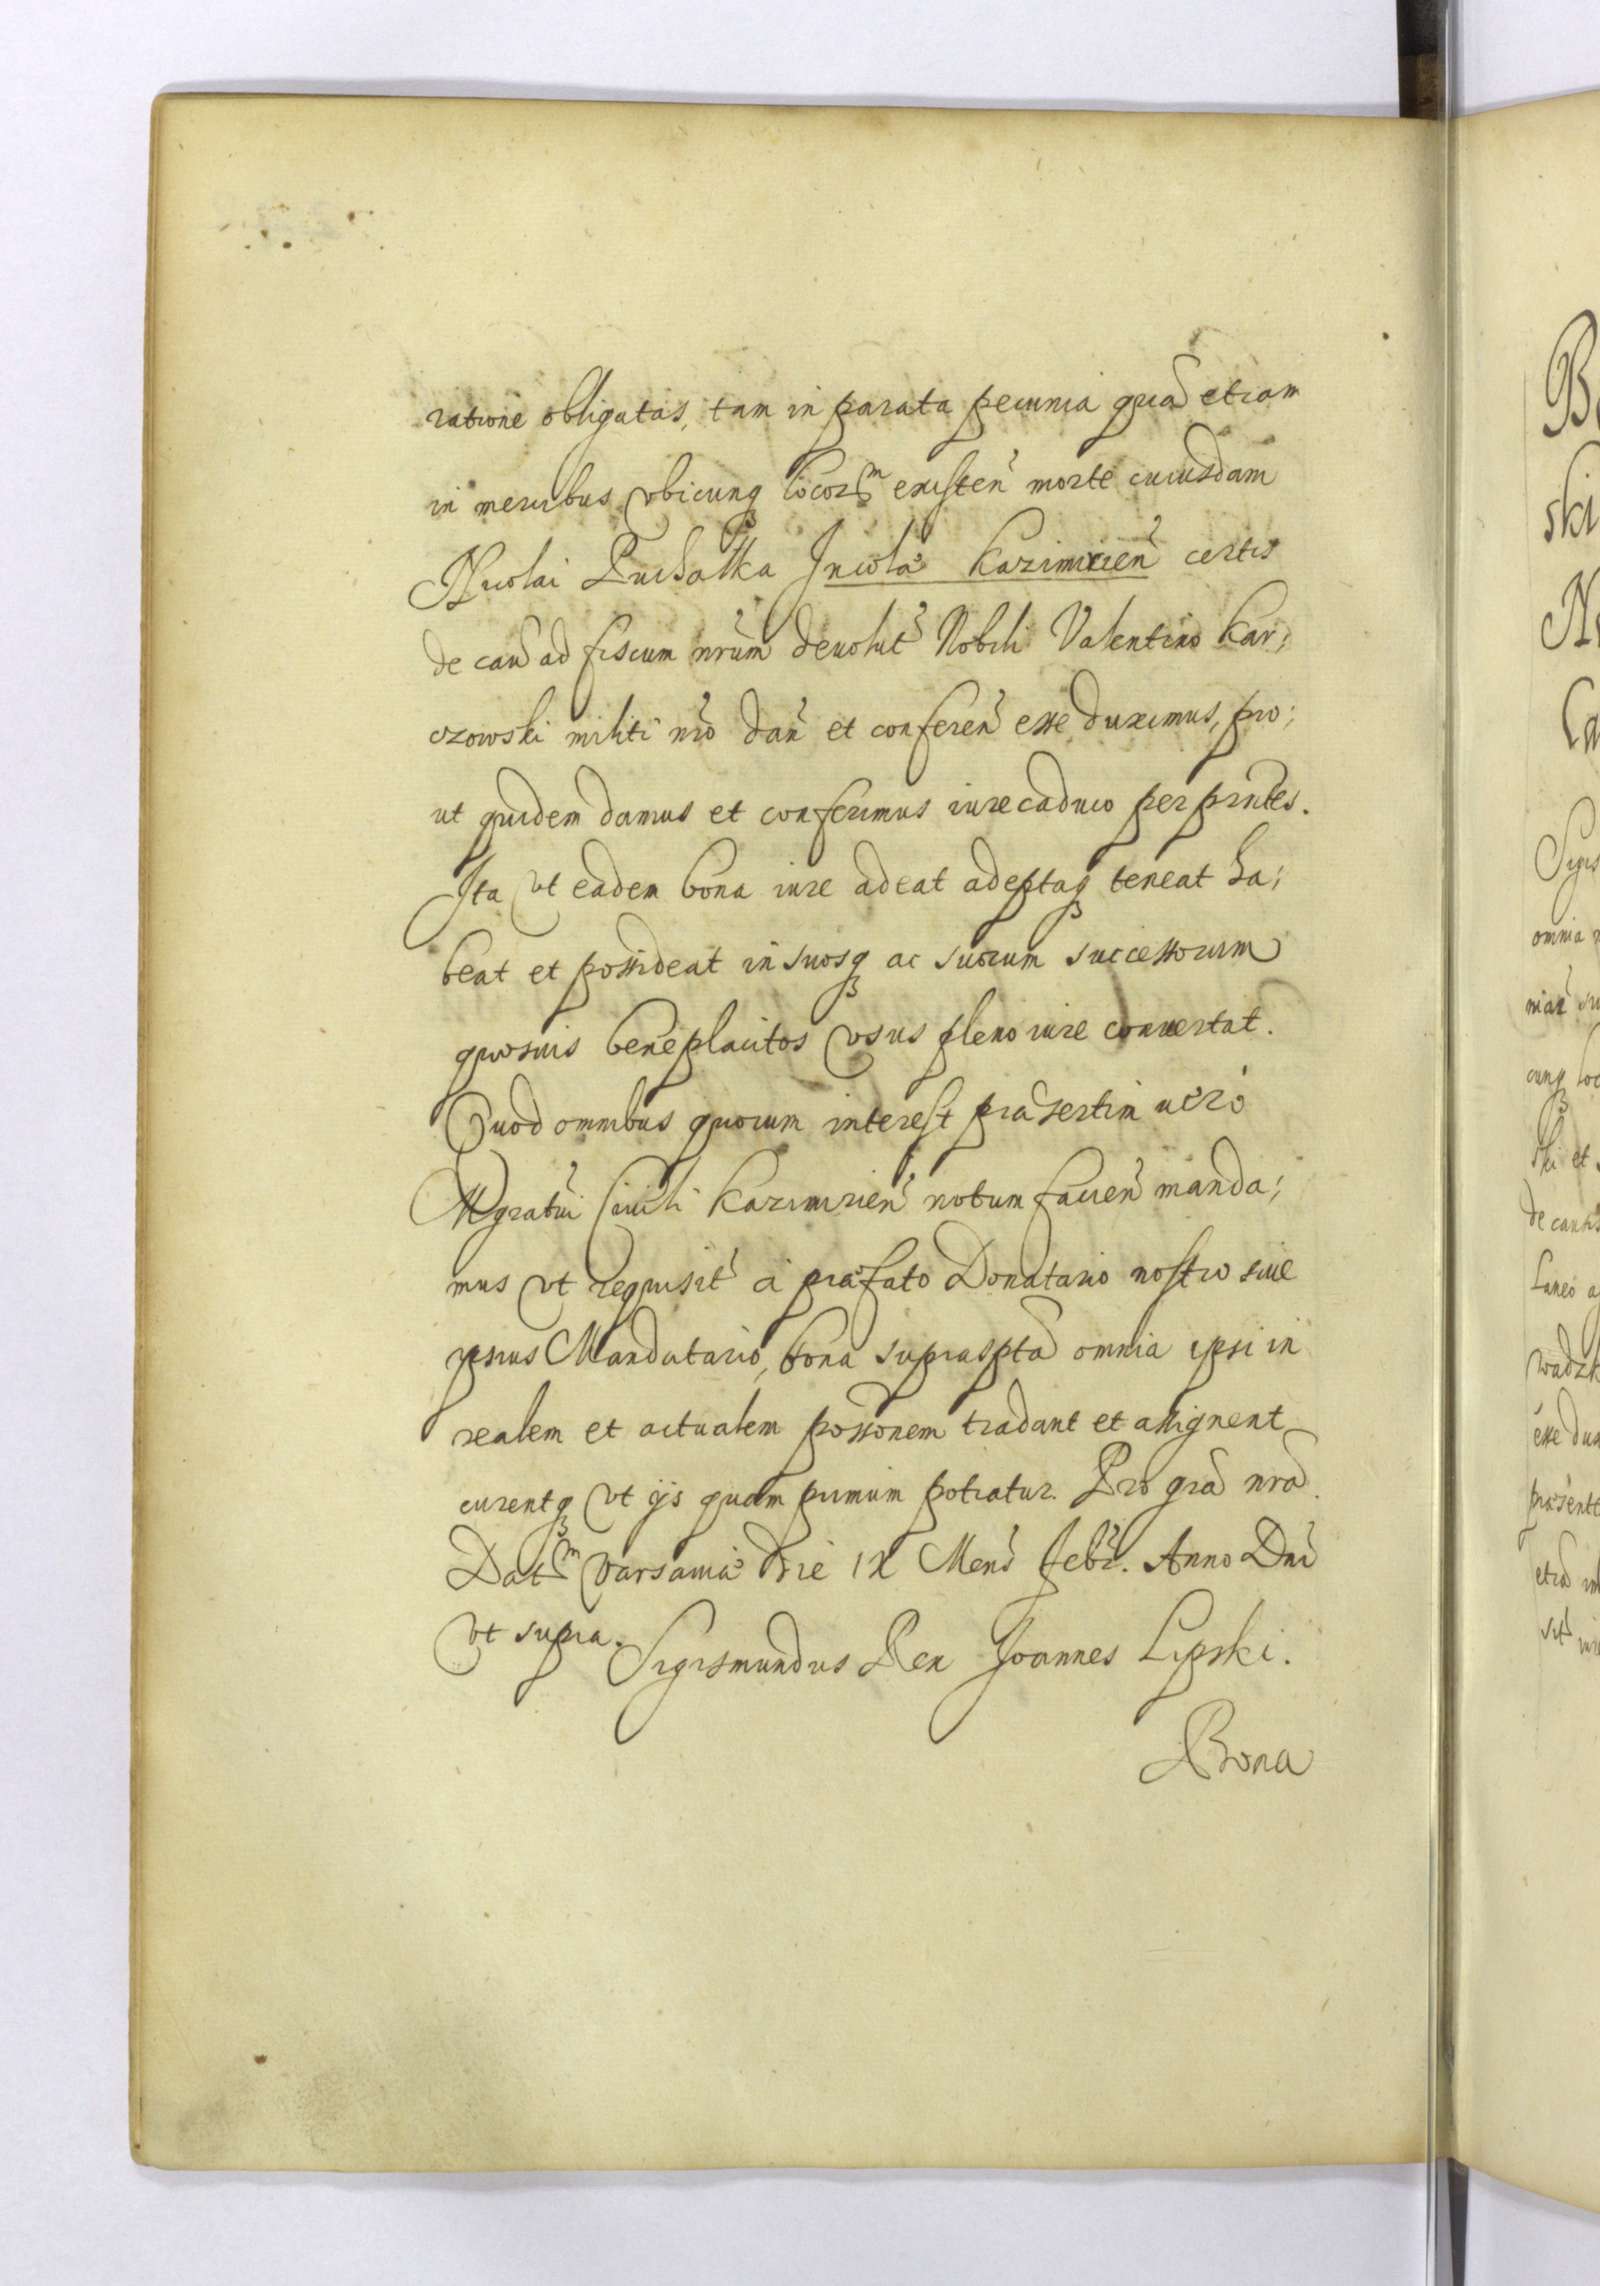 ratione obligatas, tam in parata pecunia quã etiam
in mercibus vbicunq locorm existen morte cuiusdam
Nicolai Puchalka Incolæ Kazimirien certis
de cau ad fiscum nrum deuolut Nobili Valentino Kar;
czowski militi nro dan et conferen esse duximus, pro;
ut quidem damus et conferimus iure caduco per pntes.
Ita vt eadem bona iure adeat adeptaq teneat ha;
beat et possideat in suosq ac suorum successorum
quosuis beneplacitos vsus pleno iure conuertat.
Quod omnibus quorum interest præsertim uero
Mgratui Ciuili Kazimirien notum facien manda;
mus vt requisit à præfato Donatario nostro siue
ipsius Mandatario, bona supraspta omnia ipsi in
realem et actualem possonem tradant et assignent
curentq vt ijs quam primum potiatur. Pro gra nra.
Datm Varsauiæ die IX Mens Febr. Anno Dni
vt supra. Sigismundus Rex Joannes Lipski.
Bona
B
ski
N
Ca
Sigis
omnia
cunq loc
ski et
de cau
Laneo
wadzk
esse dux
præsent